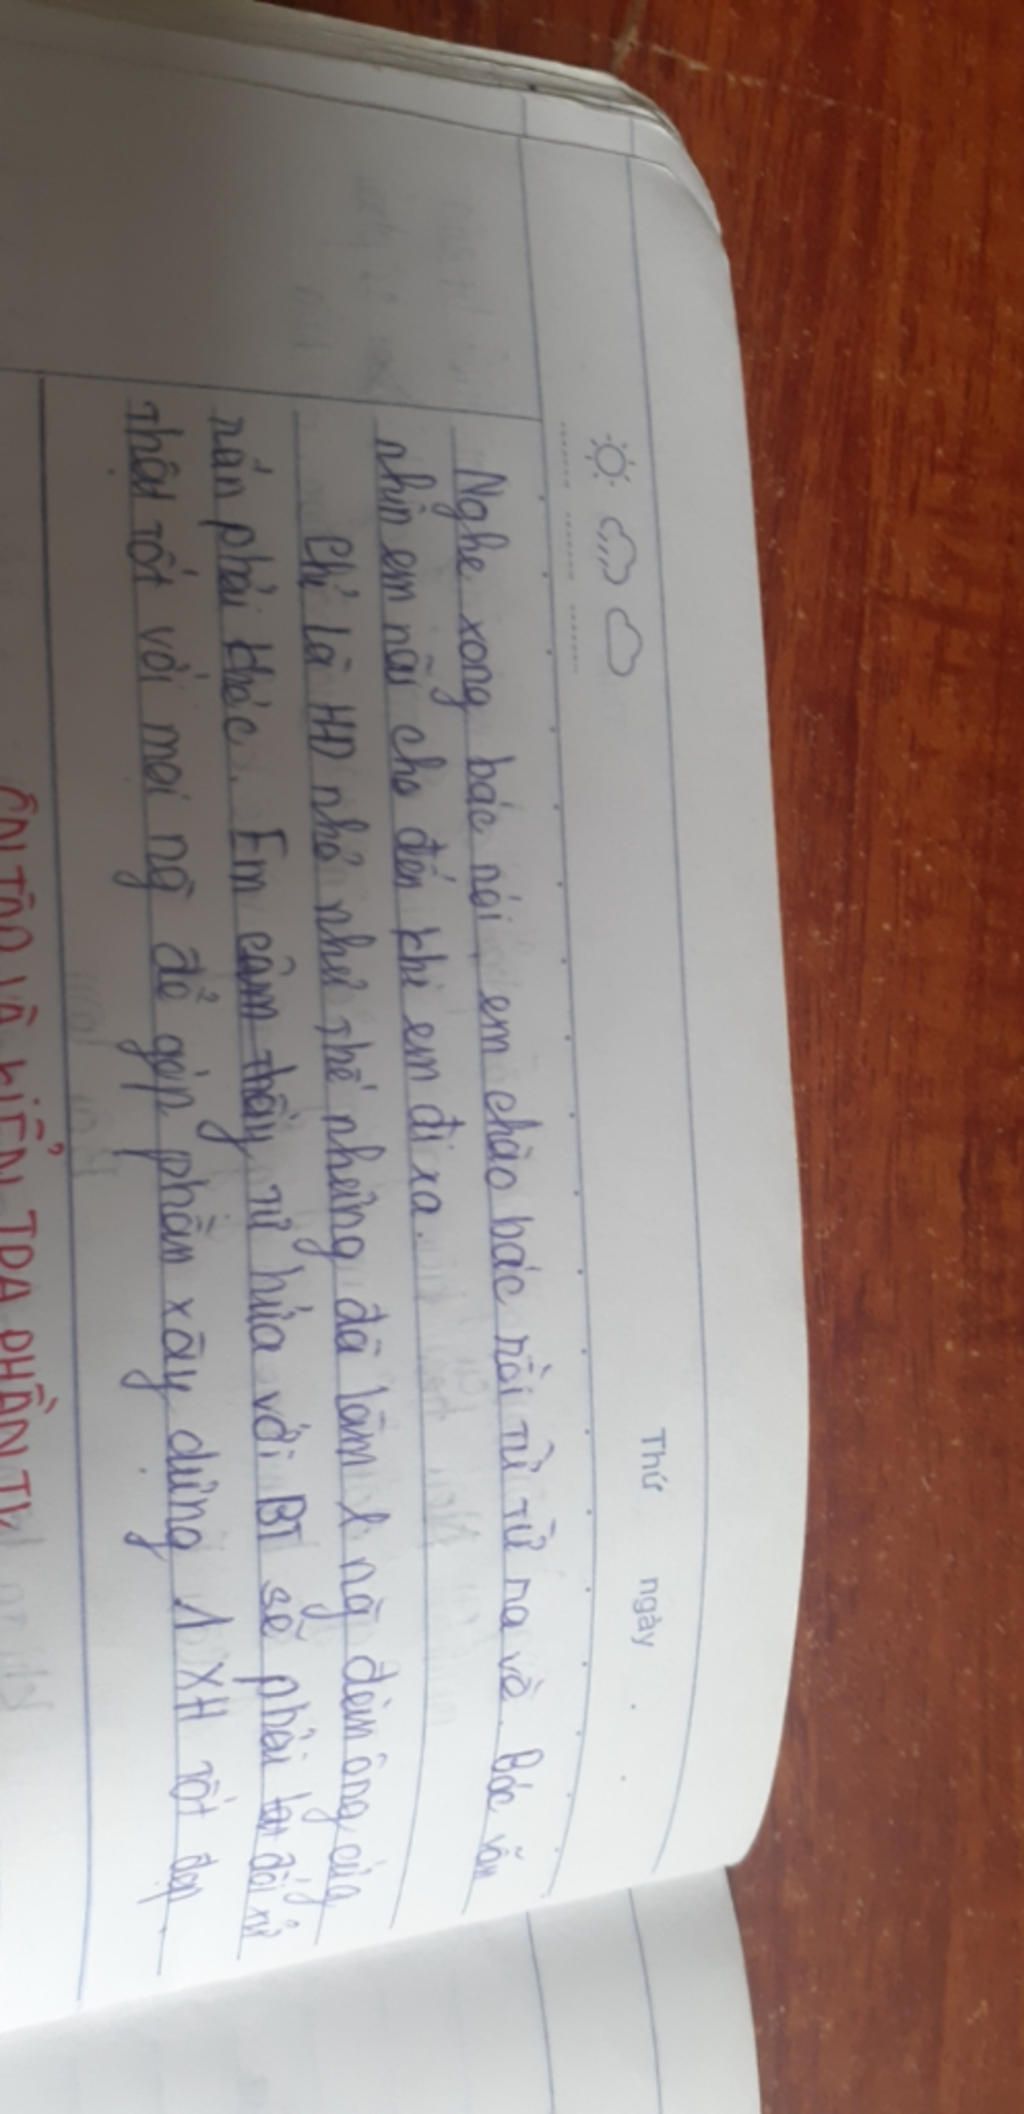 Thứ ngày
Nghe xong bác nói, em chào bác rồi từ từ ra về. Bác vẫn
nhìn em mãi cho đến khi em đi xa.
Chỉ là HĐ nhỏ như thế nhưng đã làm 1 ng̃ đàn ông cứng
rắn phải khác. Em cảm thấy tử hứa với BT sẽ phải đối xử
thật tốt với mọi ng̃ để góp phần xây dựng 1 XH tốt đẹp.
ÔN TẬP VÀ KIỂM TRA PHẦN TV